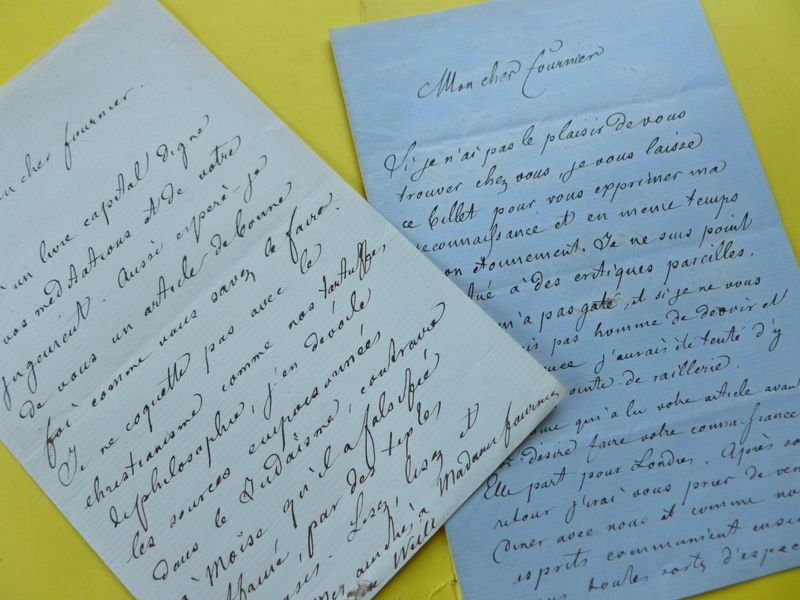 cher fournier.
un livre capital digne
vos meditations et de votre
jugement. Aussi espéré-je
de vous un article de bonne
foi comme vous savez le faire.
Je ne coquette pas avec le
christianisme comme nos tartuffes
de philosophie, j'en dévoile
les sources empoisonnées
dans le Judaïsme, contraire
à Moïse qu'il a falsifié
par des textes
Lisez, lisez et
à Madame fournier
Weill
Mon cher fournier
Si je n'ai pas le plaisir de vous
trouver chez vous, je vous laisse
ce billet pour vous exprimer ma
reconnaissance et en meme temps
mon étonnement. Je ne suis point
à des critiques pareilles.
m'a pas gaté, et si je ne vous
pas homme de devoir et
j'aurais été tenté d'y
pointe de raillerie.
qui a lu votre article avant
desire faire votre connaissance
Elle part pour Londres. Après son
retour j'irai vous prier de venir
diner avec nous et comme nos
esprits communient ensemble
toutes sortes d'espèces